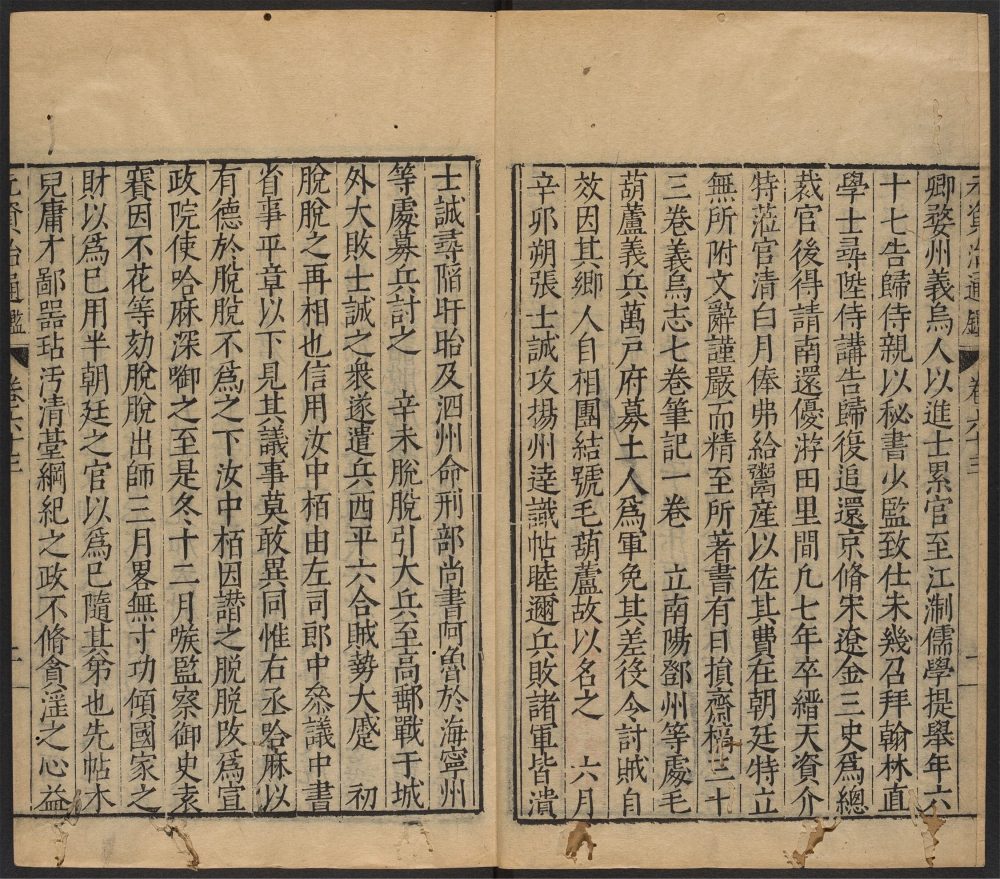 元資治通鑑 卷六十三 十一
卿婺州義烏人以進士累官至江淛儒學提舉年六
十七告歸侍親以秘書少監致仕未幾召拜翰林直
學士尋陞侍講告歸復追還京脩宋遼金三史爲總
裁官後得請南還優游田里間凢七年卒縉天資介
特蒞官清白月俸弗給鬻産以佐其費在朝廷特立
無所附文辭謹嚴而精至所著書有日損齋稿三十
三卷義烏志七卷筆記一卷　立南陽鄧州等處毛
葫蘆義兵萬戸府募土人爲軍免其差役令討賊自
效因其鄉人自相團結號毛葫蘆故以名之　六月
辛卯朔張士誠攻揚州達識帖睦邇兵敗諸軍皆潰
士誠尋陷盱眙及泗州命刑部尚書阿魯於海寧州
等處募兵討之　辛未脫脫引大兵至高郵戰于城
外大敗士誠之衆遂遣兵西平六合賊勢大蹙　初
脫脫之再相也信用汝中栢由左司郎中叅議中書
省事平章以下見其議事莫敢異同惟右丞哈麻以
有德於脫脫不爲之下汝中栢因譖之脫脫改爲宣
政院使哈麻深啣之至是冬十二月嗾監察御史袁
賽因不花等劾脫脫出師三月畧無寸功傾國家之
財以爲已用半朝廷之官以爲已隨其弟也先帖木
兒庸才鄙器玷汚清臺綱紀之政不脩貪淫之心益
元資治通鑑 卷六十三